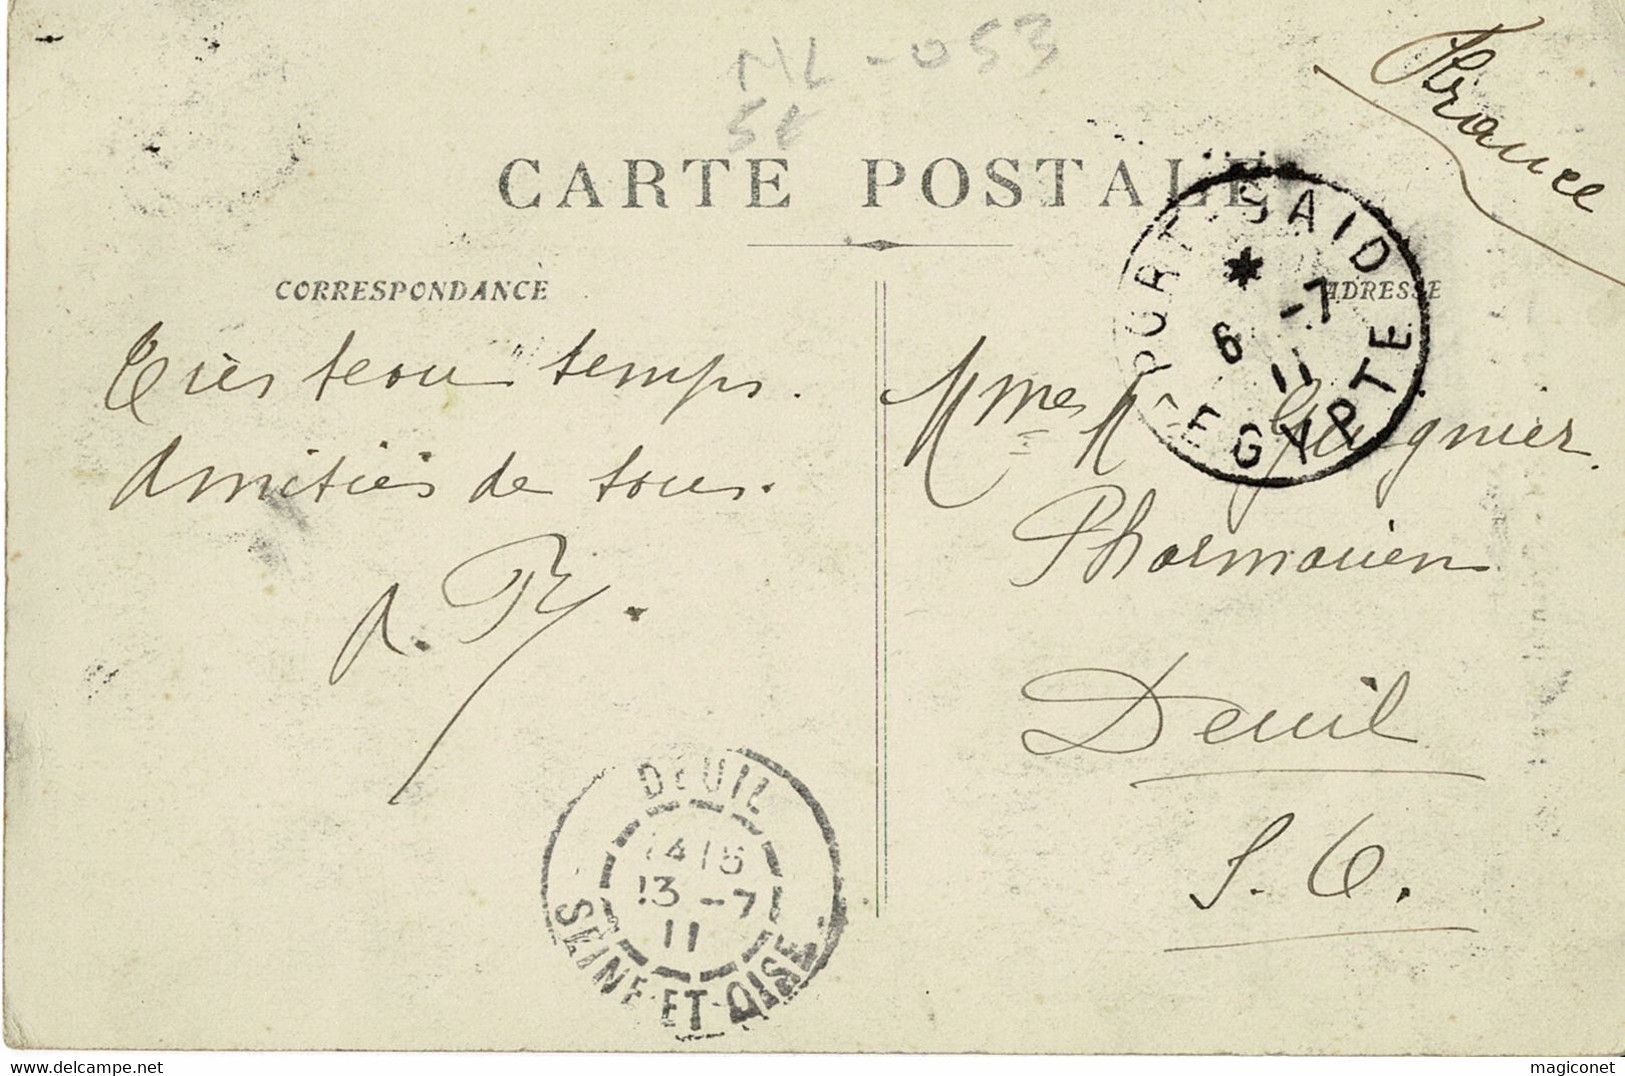 ML-053
5€
France
CARTE POSTALE
PORT-SAID
6 -7
11
EGYPTE
CORRESPONDANCE
ADRESSE
Très beau temps.
Amitiés de tous.
Mmes
Pharmacien
Deuil
S. O.
DEUIL
13 -7
11
SEINE-ET-OISE
delcampe.net
magiconet